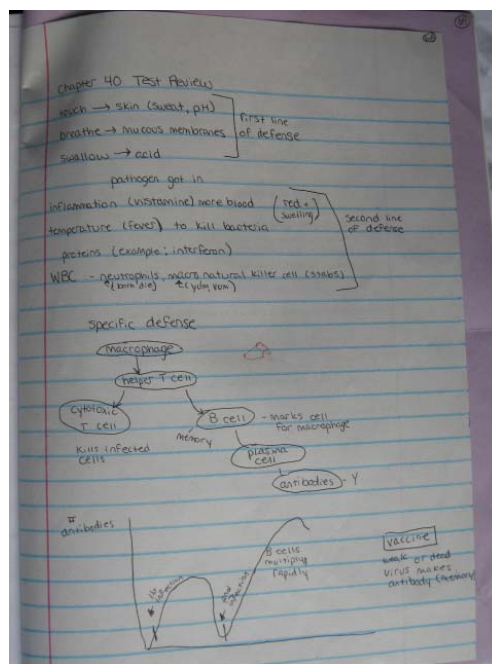 Chapter 40 Test Review
touch → skin (sweat, pH)
breathe → mucous membranes
swallow → acid
first line
of defense
pathogen got in
inflammation (histamine) more blood (red + swelling)
temperature (fever) to kill bacteria
proteins (example: interferon)
WBC - neutrophils, macro natural killer cell (stabs)
second line
of defense
specific defense
macrophage
helper T cell
cytotoxic
T cell
kills infected
cells
B cell - marks cell
for macrophage
memory
plasma
cell
antibodies - Y
#
antibodies
1st
infection
2nd
infection
B cells
multiply
rapidly
vaccine
weak or dead
virus makes
antibody (memory)